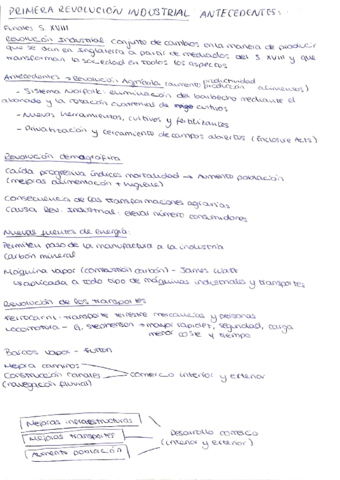 PRIMERA REVOLUCIÓN INDUSTRIAL ANTECEDENTES:
Finales S. XVIII
Revolución Industrial: conjunto de cambios en la manera de producir
que se dan en Inglaterra a partir de mediados del S. XVIII y que
transforman la sociedad en todos los aspectos
Antecedentes → Revolución Agrícola (aumento productividad
producción alimentos)
- Sistema Norfolk: eliminación del barbecho mediante el
abonado y la rotación cuatrienal de cultivos
- Nuevas herramientas, cultivos y fertilizantes
- Privatización y cercamiento de campos abiertos (Enclosure Acts)
Revolución demográfica
Caída progresiva índices mortalidad → Aumento población
(mejoras alimentación + higiene)
Consecuencia de las transformaciones agrarias
Causa Rev. Industrial: elevar número consumidores
Nuevas fuentes de energía:
Permiten paso de la manufactura a la industria
Carbón mineral
Máquina vapor (combustión carbón) - James Watt
↳ aplicada a todo tipo de máquinas industriales y transportes
Revolución de los transportes
Ferrocarril: transporte terrestre mercancías y personas
Locomotora - G. Stephenson → mayor rapidez, seguridad, carga
menor coste y tiempo
Barcos vapor - Fulton
Mejora caminos
Construcción canales → comercio interior y exterior
(navegación fluvial)
Mejoras infraestructuras
Mejoras transportes
Aumento población
Desarrollo comercio
(interior y exterior)